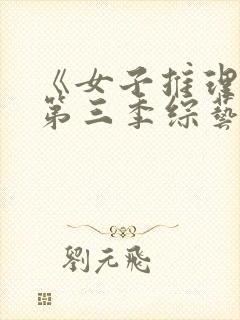 《女子推理
第三季综藝
劉元飛